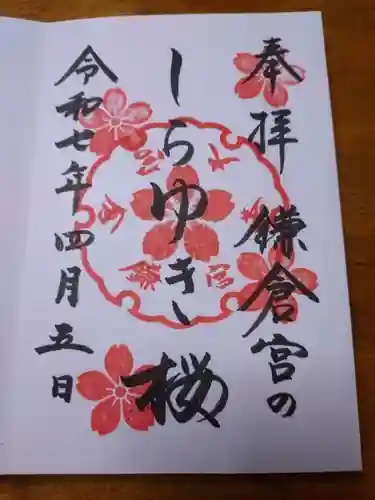 奉拝 鎌倉宮の
しらゆき
桜
令和七年四月五日